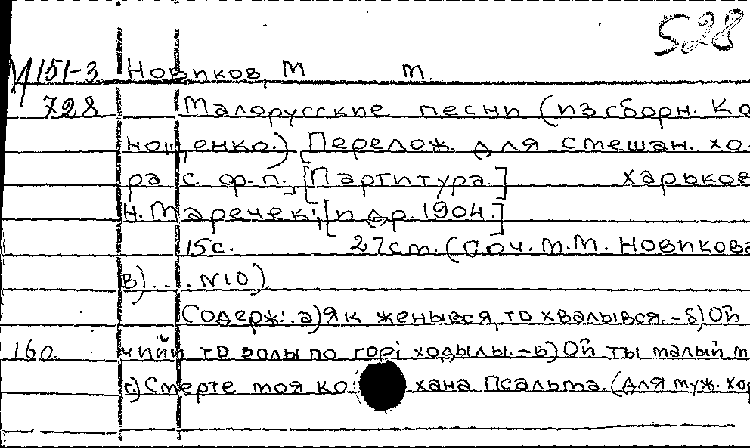 528
М151-3 Новиков, М М.
728 Малорусские песни (из сборн. Ко
нощенко.) Перелож. для смешан. хо-
ра с ф.-п., [Партитура.] Харьков
Н. Маречек, [п др. 1904.]
15с. 27см. (Соч. М.М. Новикова
в) . . . №10)
Содерж: а) Як женывся, то хвалывся. – б) Ой
160 чий то волы по горі ходылы. – в) Ой ты малый
г) Смерте моя ко хана Псальма. (для муж. хор